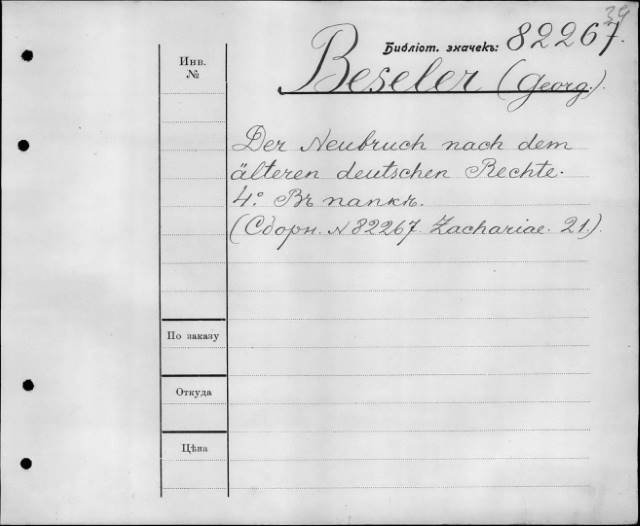 39
Библіот. значекъ: 82267.
Инв.
№
Beseler (Georg.).
Der Neubruch nach dem
älteren deutschen Rechte.
4° Въ папкѣ.
(Сборн. N 82267. Zachariae. 21.)
По заказу
Откуда
Цѣна